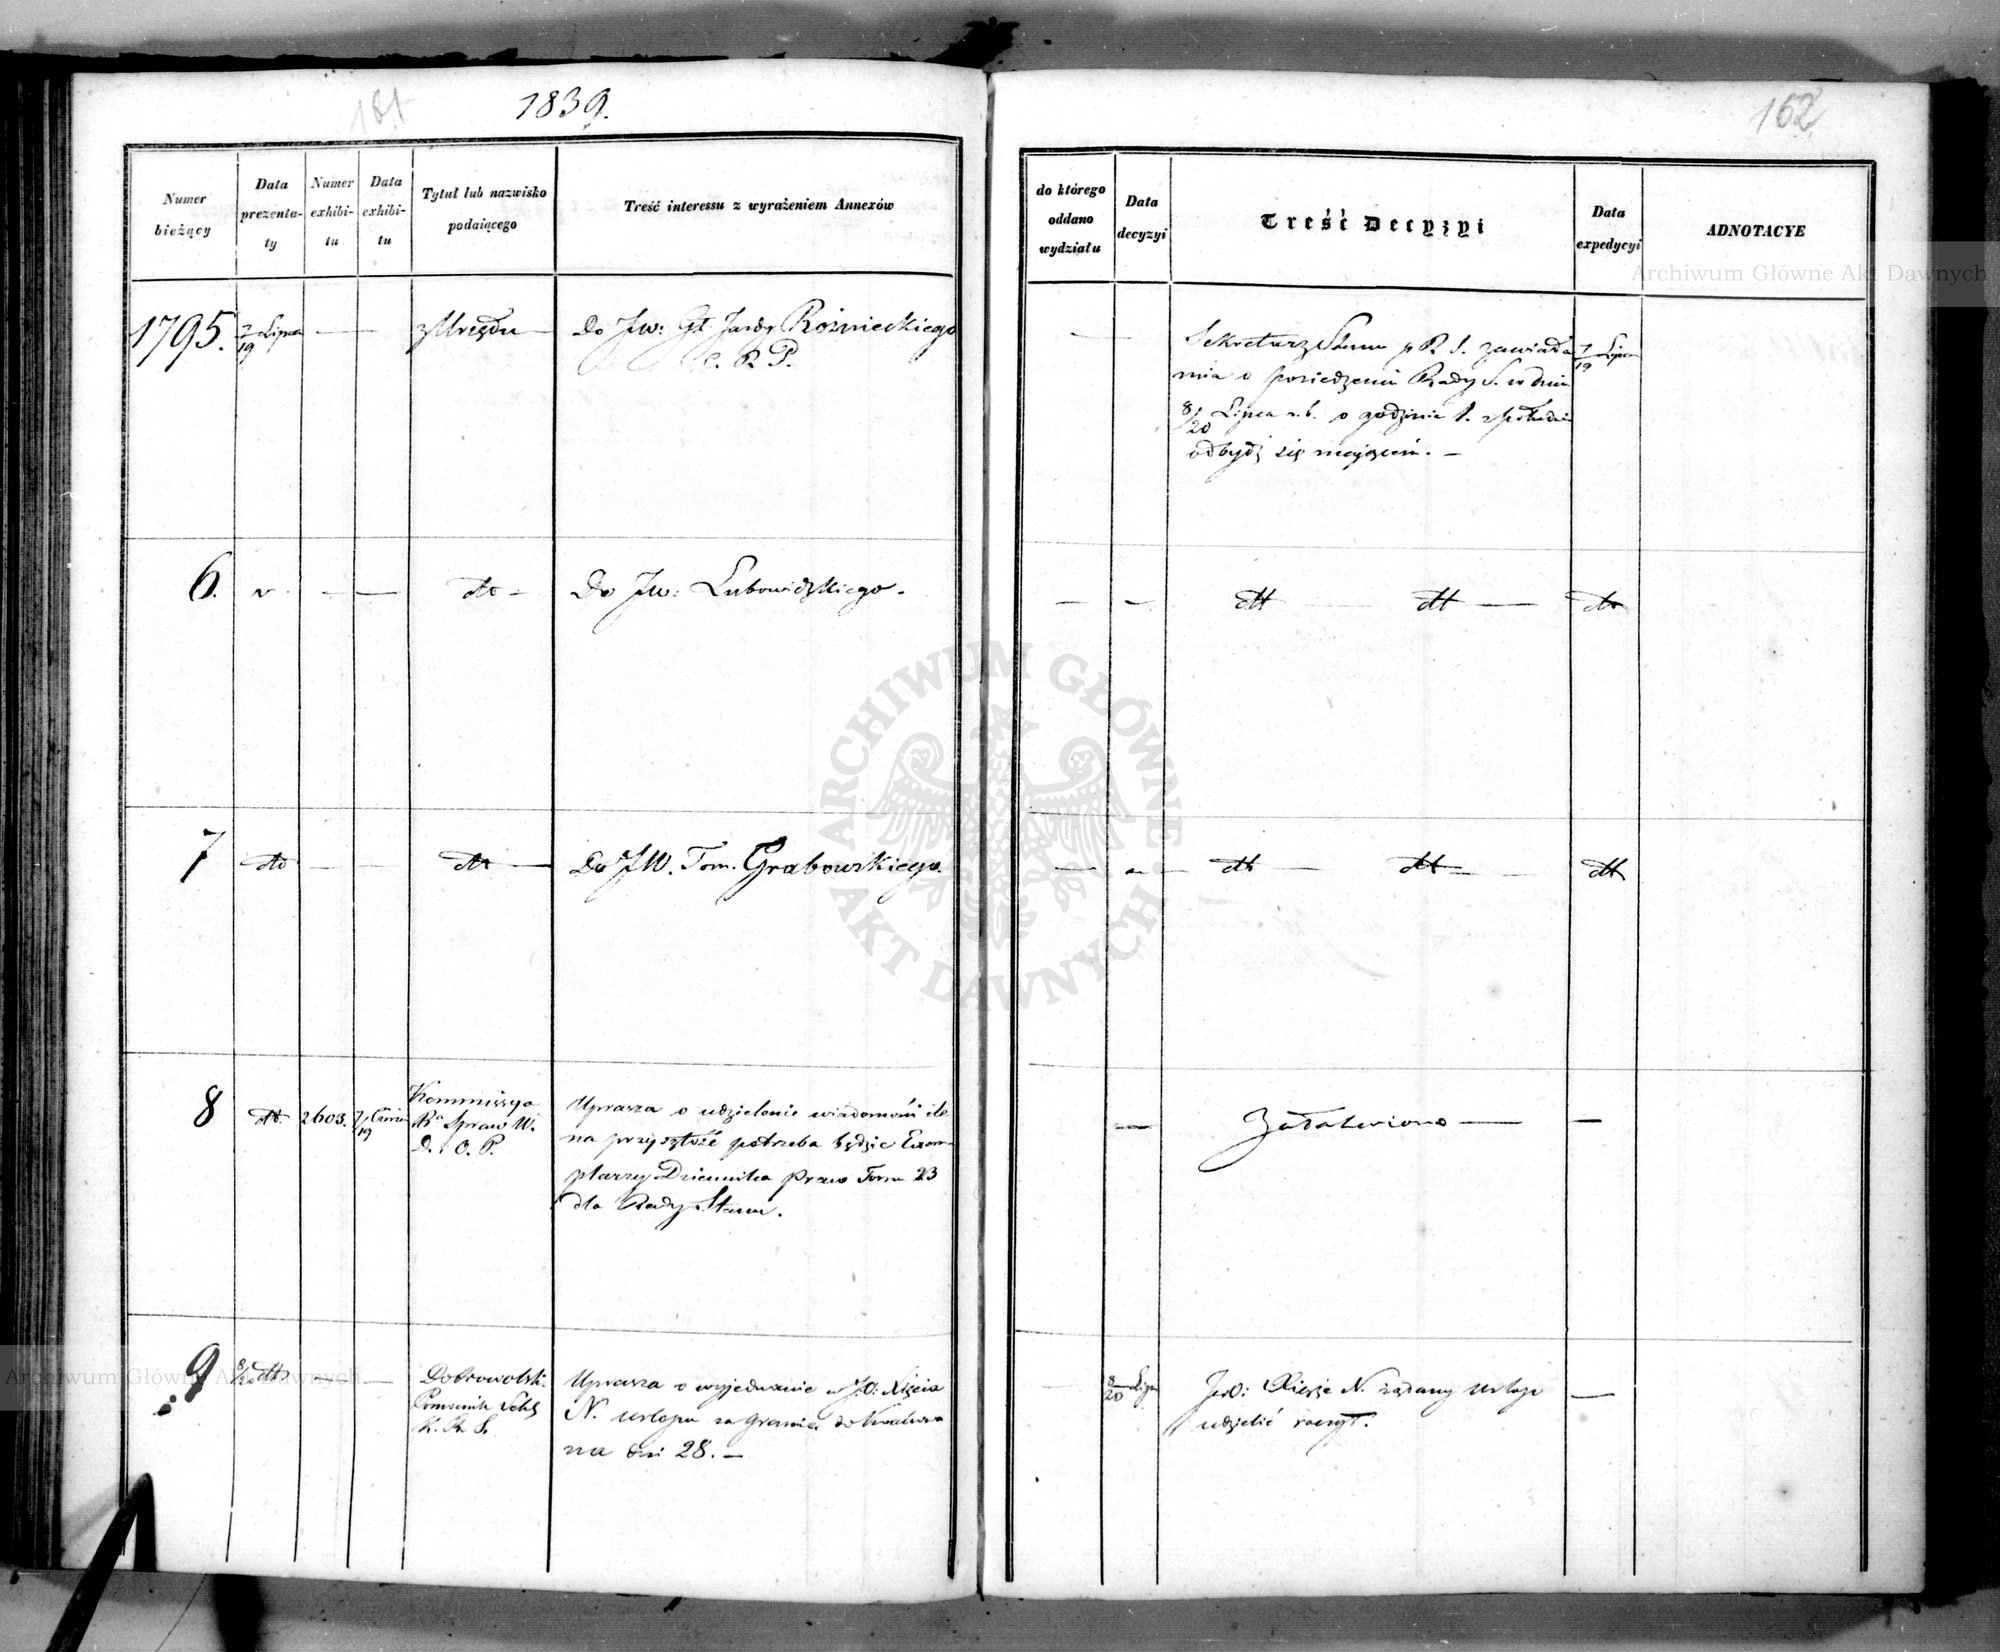 181
1839.
162
Numer
bieżący
Data
prezenta-
ty
Numer
exhibi-
tu
Data
exhibi-
tu
Tytuł lub nazwisko
podaiącego
Treść interessu z wyrażeniem Annexów
do którego
oddano
wydziału
Data
decyzyi
Treść Decyzyi
Data
expedycyi
ADNOTACYE
1795.
7/19 Lipca
z Urzędu
Do JW: Gł Jazdy Rożnieckiego
C. R. P.
Sekretarz Stanu p R. S. zawiada
mia o posiedzeniu Rady S. w dniu
8/20 Lipca r. b. o godzinie 1. z południa
odbydź się mającem.
7/19 Lipca
6.
dto
Do JW: Lubowidzkiego.
dtt dtt dto
7
dto
dto
Do JW. Tom. Grabowskiego.
dtt dtt dtt
8
dto.
2603.
7/19 Czerw
Kommissya
Ra Spraw W.
D. i O. P.
Uprasza o udzielenie wiadomości ile
na przyszłość potrzeba będzie Exem
plarzy Dziennika Praw Tomu 23
dla Rady Stanu.
Załatwiono
9
8/20 dtt
Dobrowolski
Pomocnik Sekr
K. R. S.
Uprasza o wyjednanie u J.O: Xięcia
N. urlopu za granicę do
na dni 28.
8/20 Lipca
JO: Xiąże N. żądany urlop
udzielić raczył.
Archiwum Główne Akt Dawnych
ARCHIWUM GŁÓWNE AKT DAWNYCH
Archiwum Główne Akt Dawnych